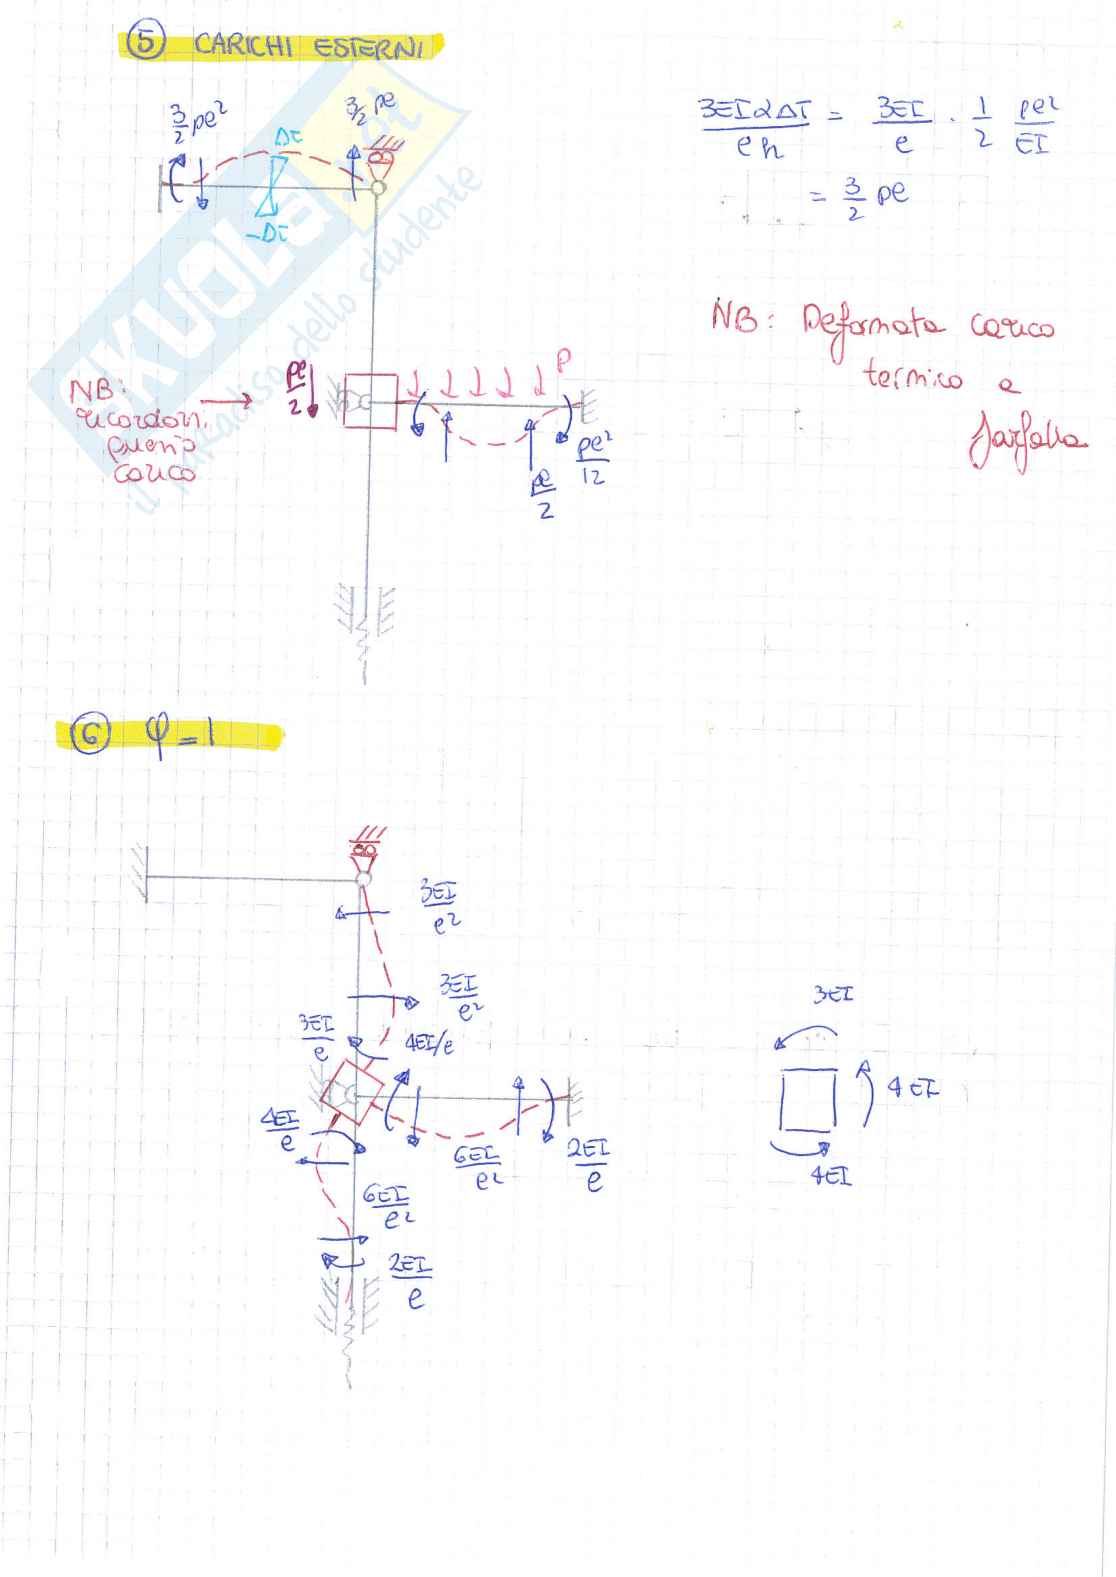 5 CARICHI ESTERNI
3/2 pe²
3/2 pe
ΔT
-ΔT
3EIαΔT/eh = 3EI/e · 1/2 pe²/EI
= 3/2 pe
NB: Deformata carico
termico a
farfalla
NB:
ricordarsi
questo
carico
pe/2
P
pe²/12
pe/2
SKUOLA.it
il paradiso dello studente
6 φ=1
3EI/e²
3EI/e²
3EI/e
4EI/e
4EI/e
6EI/e²
2EI/e
6EI/e²
2EI/e
3EI
4EI
4EI